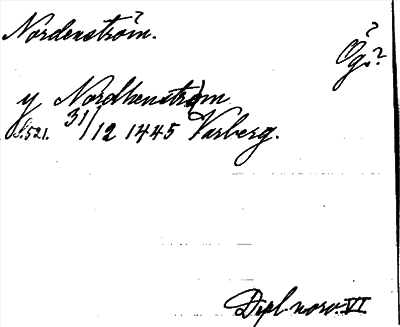 Nordenström.
Ög.?
y Nordhenstrom
S. 521. 31/12 1445 Varberg.
Dipl. norv. VI.